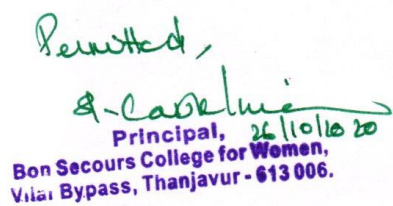 Permitted,
Principal, 26/10/2020
Bon Secours College for Women,
Vilar Bypass, Thanjavur - 613 006.